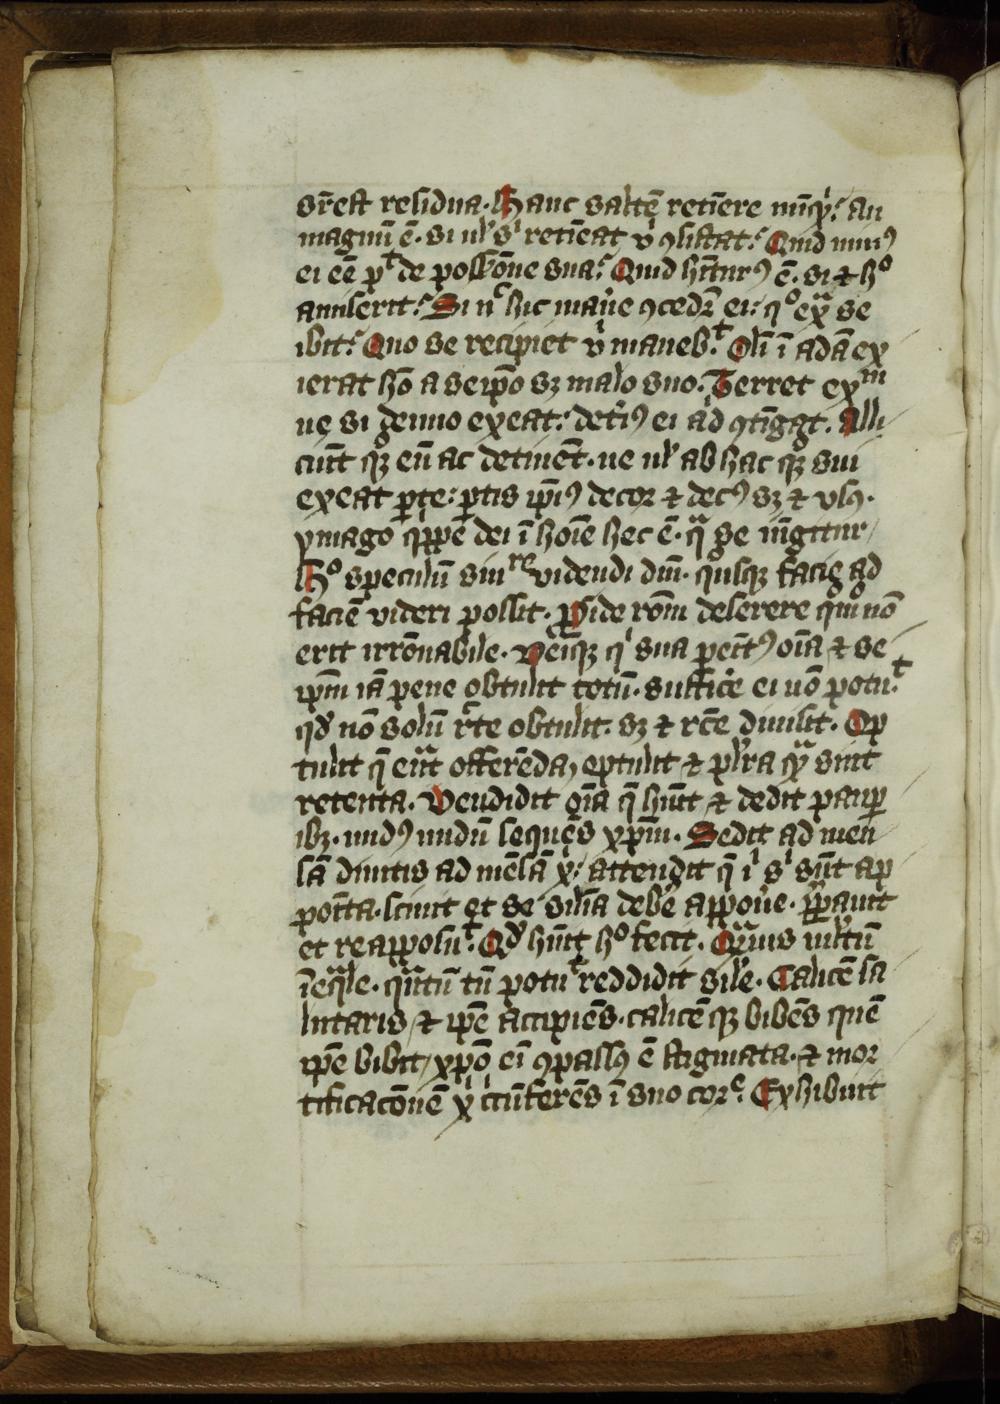 sr̄est residua. Hanc saltē retīere nūq̇ͥ. an
magnū ē. si ul̓ sͥ retīeat ꝟ ꝯsistat. Quid minꝰ
ei eē pͭ de possessiōne sua. Quid hītrꝰ ē. si ⁊ hͦ
amiserit. Si nͨ hic man̓e ꝯcedr̄ ei: qͦ exͣ se
ibit. Quo se recipiet ꝟ manebͭ. Oli ī adā ex
ierat hō a seip̄o sꝫ malo suo. Terret exͫ
ne si denuo exeat: det̓iꝰ ei ad ꝯtīgat. Alli
ciūt qꝫ eū ac detinēt. ne ul̓ ab hac qꝫ sui
exeat ꝑte: ꝑtis ip̄iꝰ decor ⁊ decꝰ sꝫ ⁊ usꝰ.
ymago q̇ppe dei ī hoīe hec ē. qͣ se īngitur
Hͦ speculū suiͬͤ videndi dm̄. qͦusqꝫ facie ad
faciē videri possit. Proīde rōm deserere qͦm̄ nō
erit irrōnabile. Deīqꝫ qͥ sua penitꝰ oīa ⁊ se
ip̄m iā pene obtulit totū. suffic̓e ei nō potuͭ.
qd̓ nō solū r̄te obtulit. sꝫ ⁊ rc̄e diuisit. Op
tulit q̄ erāt offerēda, optulit ⁊ pl̓ra qͣ sint
retenta. Vendidit oīa q̄ hūit ⁊ dedit pauꝑ
ibꝫ. nudꝰ nudū sequēs xp̄m. Sedit ad men
sā diuitis ad mēsā xͥ: attendit q̄ iͥ sͥ sūt ap
poīta. sciuit et se sil̓ia deb̓e appon̓e. pͣparauit
et reapposuͭ. Qd̓ hūit hͦ fecit. Qͣmuis ml̓tū
īeqͣle. qͣntū tn̄ potuͭ reddidit sil̓e. Calicē sa
lutaris ⁊ ip̄e accipiēs. calicē qꝫ bibēs quē
ip̄e bibit, xp̄o ei ꝯpassꝰ ē stigmata. ⁊ mor
tificacōnē xͥ circūferēs ī suo corͤ. Exhibuit